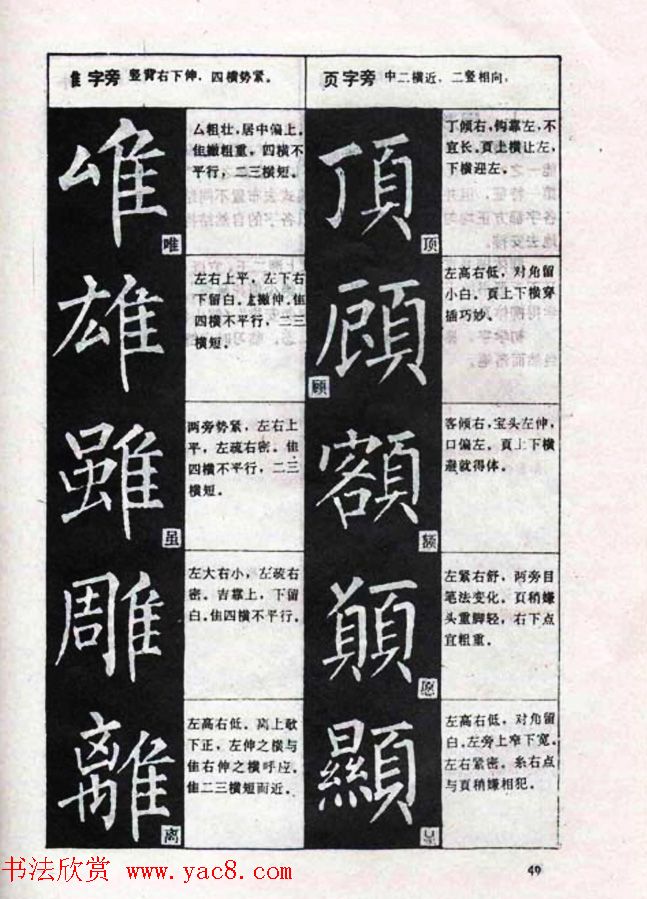 隹字旁 竖背右下伸,四横势紧。
唯
厶粗壮,居中偏上。
隹撇粗重,四横不
平行,二三横短。
唯
雄
左右上平,左下右
下留白。左撇伸.隹
四横不平行,二三
横短。
雖
两旁势紧,左右上
平,左疏右密。隹
四横不平行,二三
横短。
虽
雕
左大右小,左疏右
密。吉靠上,下留
白.隹四横不平行。
離
左高右低。离上欹
下正,左伸之横与
隹右伸之横呼应。
隹二三横短而近。
离
页字旁 中二横近,二竖相向,
頂
丁倾右,钩靠左,不
宜长。頁上横让左,
下横迎左。
顶
顧
左高右低,对角留
小白。頁上下横穿
插巧妙。
顾
額
客倾右,宝头左伸,
口偏左。頁上下横
避就得体。
额
左紧右舒,两旁目
笔法变化。頁稍嫌
头重脚轻,右下点
宜粗重。
愿
顯
左高右低,对角留
白.左旁上窄下宽。
左右紧密。糸右点
与頁稍嫌相犯。
49
书法欣赏 www.yac8.com